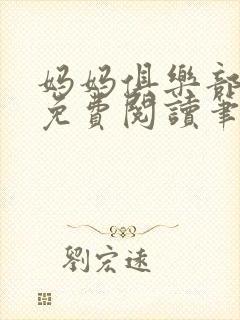 媽媽俱樂部
免費閱讀筆
劉宏遠